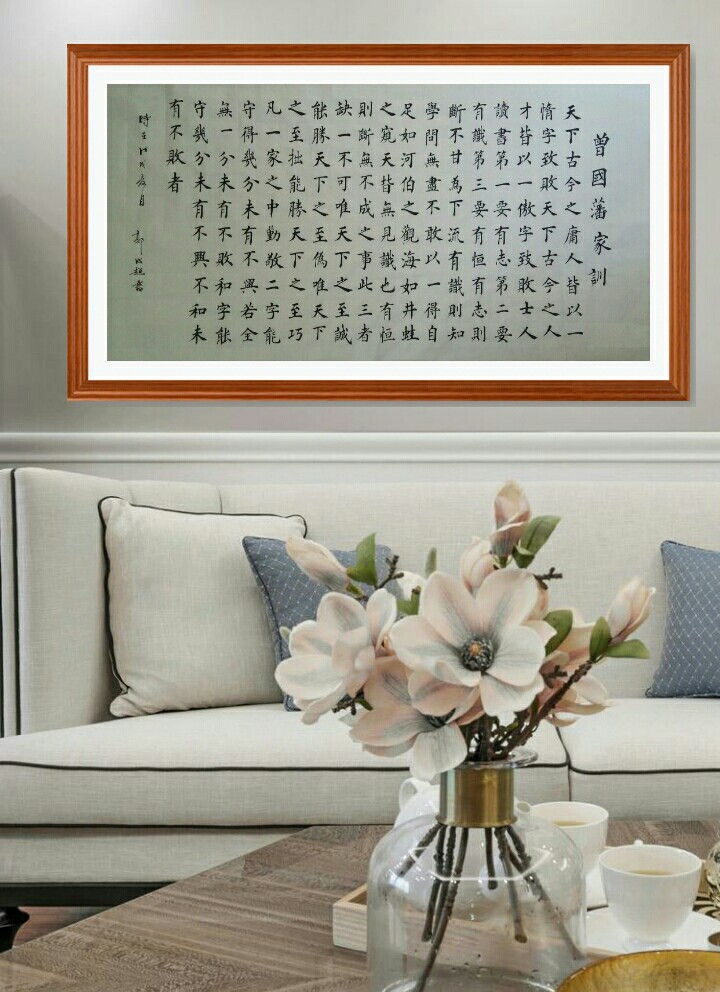 曾國藩家訓
天下古今之庸人皆以一
惰字致敗天下古今之人
才皆以一傲字致敗士人
讀書第一要有志第二要
有識第三要有恒有志則
斷不甘為下流有識則知
學問無盡不敢以一得自
足如河伯之觀海如井蛙
之窺天皆無見識也有恒
則斷無不成之事此三者
缺一不可唯天下之至誠
能勝天下之至偽唯天下
之至拙能勝天下之至巧
凡一家之中勤敬二字能
守得幾分未有不興若全
無一分未有不敗和字能
守幾分未有不興不和未
有不敗者